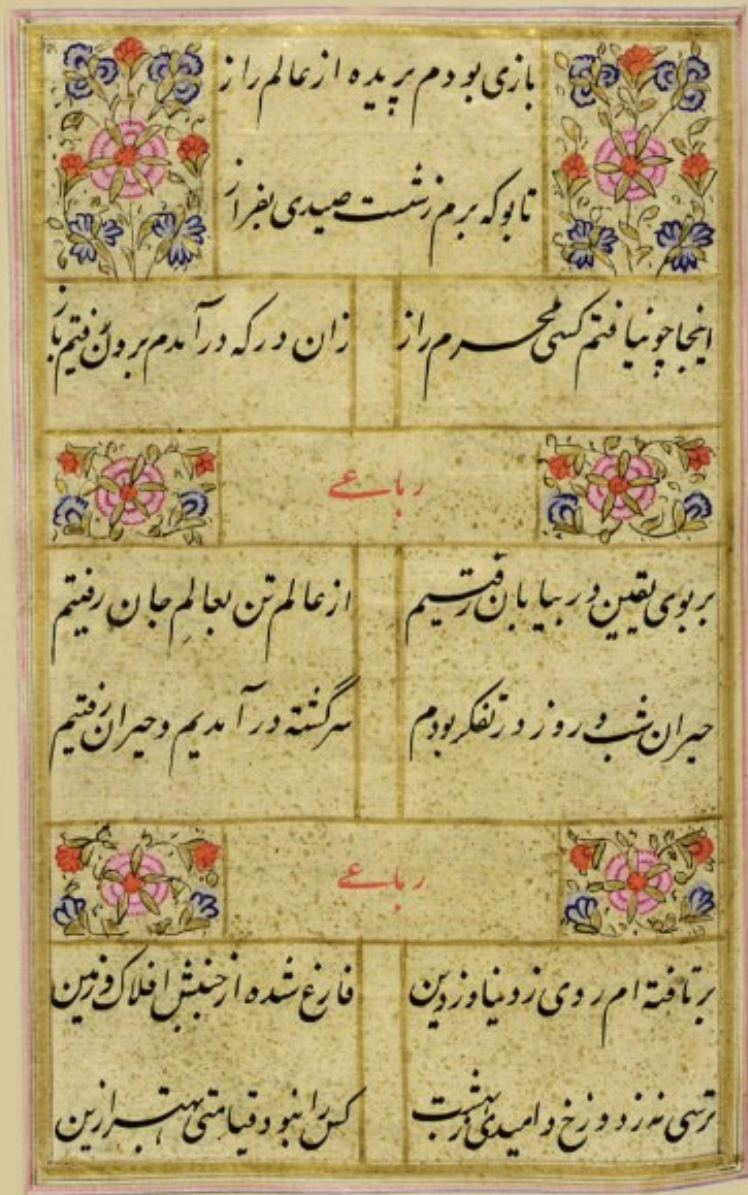 بازی بودم پریده از عالم راز
تا بو که برم زشت صیدی بفراز
اینجا چو نیافتم کسی محرم راز زان در که در آمدم برون رفتیم باز
رباعی
بر بوی یقین در بیابان رفتیم از عالم تن بعالم جان رفیتم
حیران شب و روز در تفکر بودم سرگشته در آمدیم و حیران رفتیم
رباعی
بر تافته ام روی ز دنیا و ز دین فارغ شده از جنبش افلاک و زمین
ترسی نه ز دوزخ و امیدی بهشت کس را نبود قیامتی بهتر ازین